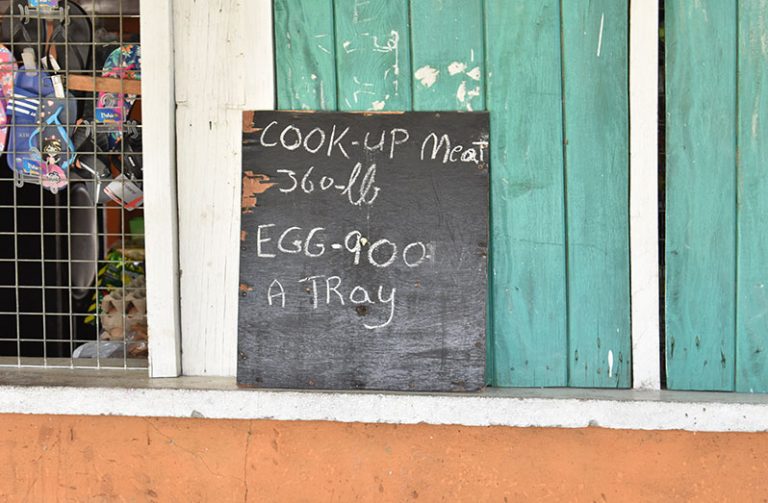 COOK-UP Meat
360-lb
EGG-900
A TRay